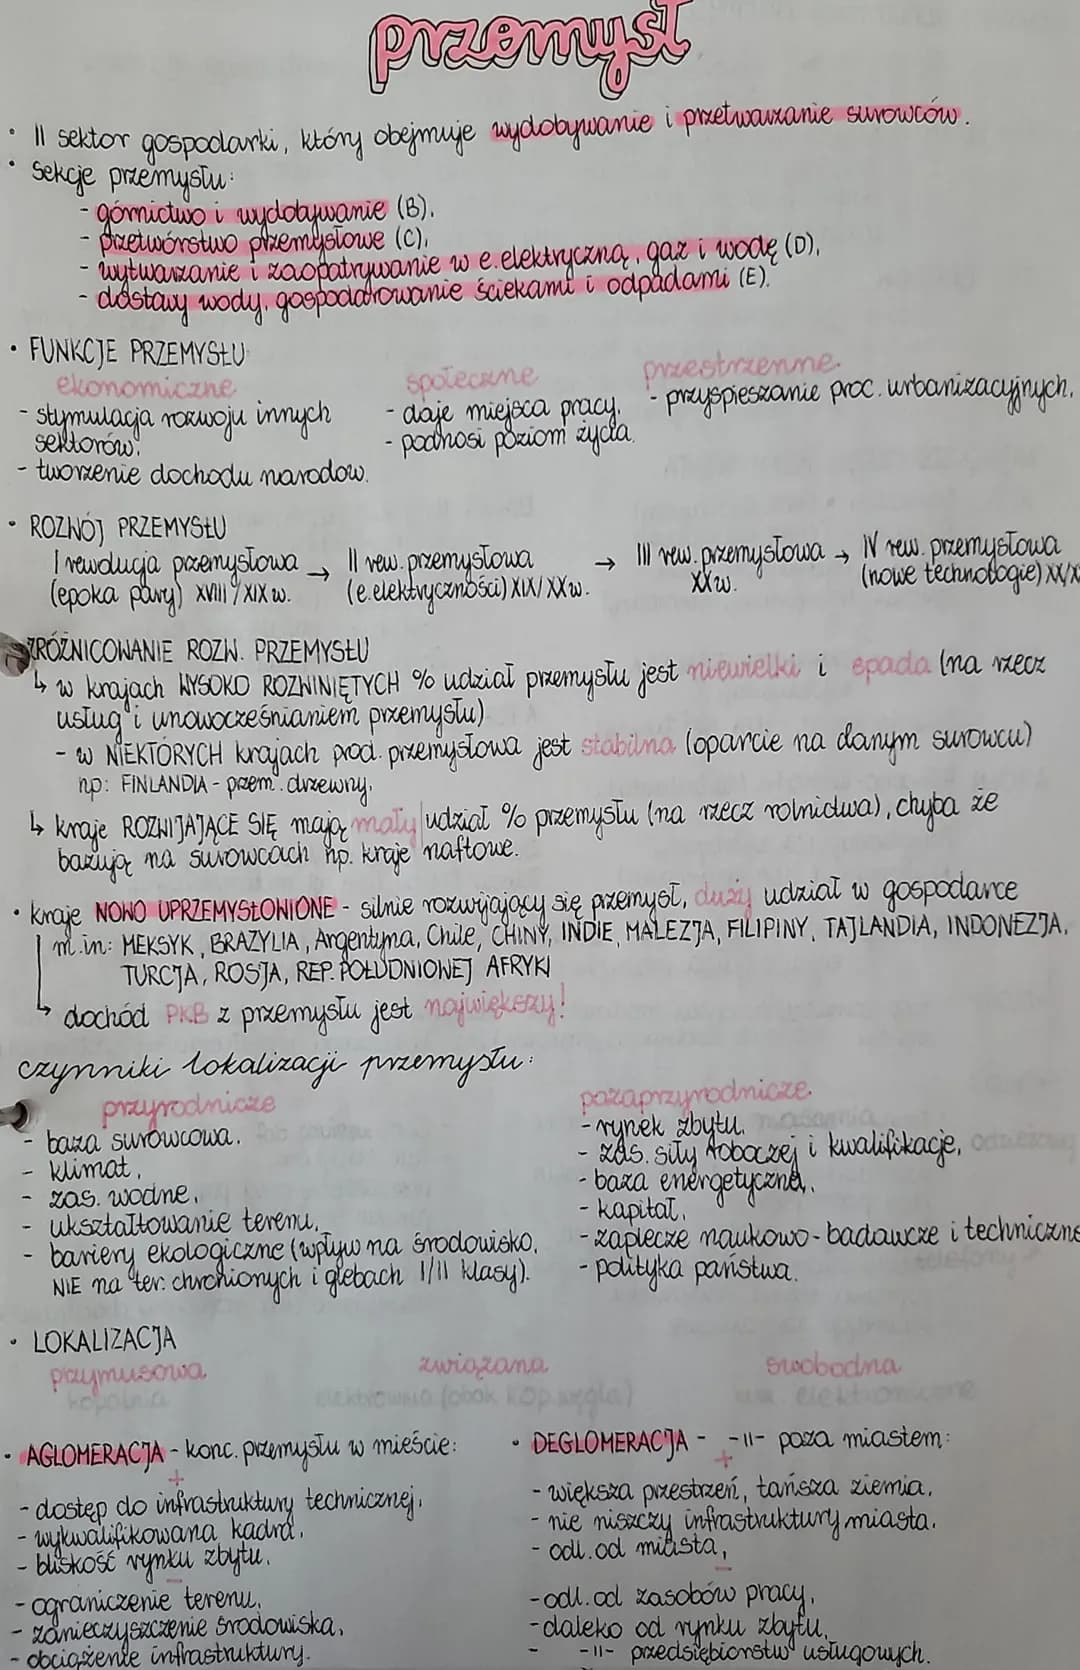 przemysł
• II sektor gospodarki, który obejmuje wydobywanie i przetwarzanie surowców.
• Sekcje przemysłu:
- górnictwo i wydobywanie (B),
- przetwórstwo przemysłowe (C),
- wytwarzanie i zaopatrywanie w e.elektryczną, gaz i wodę (D),
- dostawy wody, gospodarowanie ściekami i odpadami (E).
• FUNKCJE PRZEMYSŁU
ekonomiczne
- stymulacja rozwoju innych
sektorów,
- tworzenie dochodu narodow.
społeczne
- daje miejsca pracy,
- podnosi poziom życia.
przestrzenne
- przyspieszanie proc. urbanizacyjnych.
• ROZWÓJ PRZEMYSŁU
I rewolucja przemysłowa → II rew. przemysłowa → III rew. przemysłowa → IV rew. przemysłowa
(epoka pary) XVIII/XIX w. (e.elektryczności) XIX/XX w. XX w. (nowe technologie) XX/X
ZRÓŻNICOWANIE ROZW. PRZEMYSŁU
↳ w krajach WYSOKO ROZWINIĘTYCH % udział przemysłu jest niewielki i spada (na rzecz
usług i unowocześnianiem przemysłu)
- w NIEKTÓRYCH krajach prod. przemysłowa jest stabilna (oparcie na danym surowcu)
np: FINLANDIA - przem. drzewny.
↳ kraje ROZWIJAJĄCE SIĘ mają mały udział % przemysłu (na rzecz rolnictwa), chyba że
bazują na surowcach np. kraje naftowe.
• kraje NOWO UPRZEMYSŁONIONE - silnie rozwijający się przemysł, duży udział w gospodarce
m.in: MEKSYK, BRAZYLIA, Argentyna, Chile, CHINY, INDIE, MALEZJA, FILIPINY, TAJLANDIA, INDONEZJA,
TURCJA, ROSJA, REP. POŁUDNIOWEJ AFRYKI
↳ dochód PKB z przemysłu jest największy!
czynniki lokalizacji przemysłu:
przyrodnicze
- baza surowcowa,
- klimat,
- zas. wodne,
- ukształtowanie terenu,
- bariery ekologiczne (wpływ na środowisko,
NIE na ter. chronionych i glebach I/II klasy).
pozaprzyrodnicze
- rynek zbytu,
- zas. siły roboczej i kwalifikacje,
- baza energetyczna,
- kapitał,
- zaplecze naukowo-badawcze i techniczne
- polityka państwa.
• LOKALIZACJA
przymusowa związana swobodna
kopalnia elektrownia (obok kop. węgla) elektroniczne
• AGLOMERACJA - konc. przemysłu w mieście:
+
- dostęp do infrastruktury technicznej,
- wykwalifikowana kadra,
- bliskość rynku zbytu.
-
- ograniczenie terenu,
- zanieczyszczenie środowiska,
- obciążenie infrastruktury.
• DEGLOMERACJA - -II- poza miastem:
+
- większa przestrzeń, tańsza ziemia,
- nie niszczy infrastruktury miasta.
- odl. od miasta,
-
- odl. od zasobów pracy,
- daleko od rynku zbytu,
- -II- przedsiębiorstw usługowych.